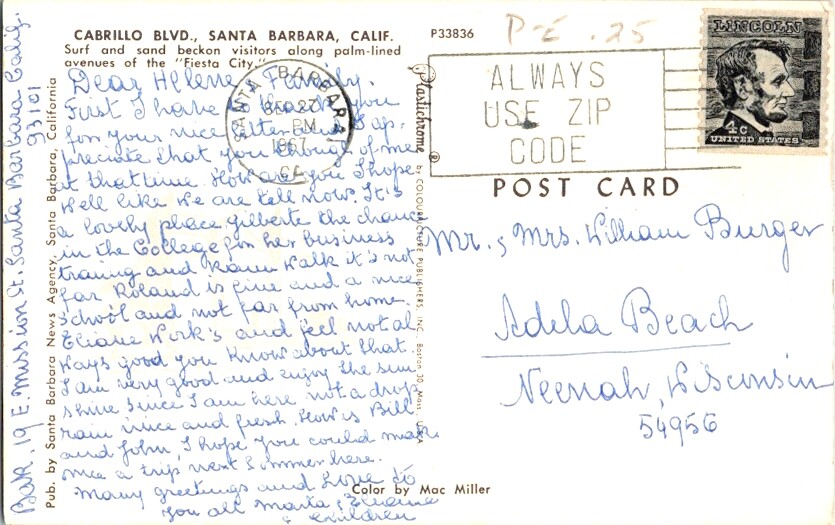 CABRILLO BLVD., SANTA BARBARA, CALIF.
Surf and sand beckon visitors along palm-lined
avenues of the "Fiesta City."
P33836
P-E .25
Dear Helene, Family.
First I have to thank you
for your nice letter I ap-
preciate that you thought of me
at that time. How are you I hope
well like we are tell now. It's
a lovely place gilberte the chance
in the College for her business
traning and Kann walk it's not
far Roland is fine and a nice
school and not far from home.
Eliane Work's and feel not al
ways good you know about that.
I am very good and enjoy the sun
shine since I am here not a drop
rain nice and fresh. How is Bill
and John, I hope you could make
once a trip next Summer here.
Many greetings and Love to
you all Marta, Eliane
& children
Bak, 19 E. Mission St. Santa Barbara Calif.
93101
Pub. by Santa Barbara News Agency, Santa Barbara, California
Plastichrome ® by COLOURPICTURE PUBLISHERS, INC., Boston 30, Mass., U.S.A.
Color by Mac Miller
SANTA BARBARA
27
PM
1967
CA
ALWAYS
USE ZIP
CODE
LINCOLN
4c
UNITED STATES
POST CARD
Mr. & Mrs. William Burger
Adela Beach
Neenah, Wisconsin
54956